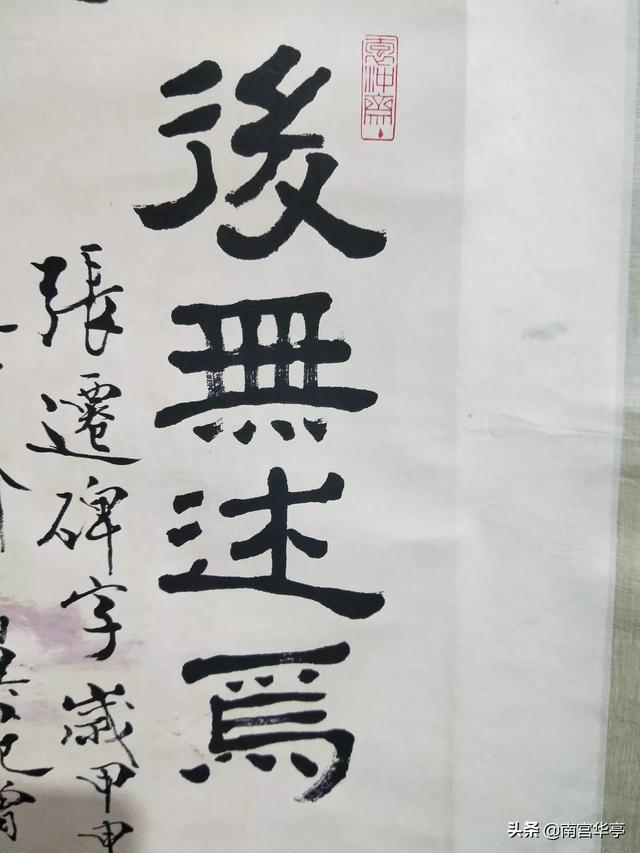 後無述焉
張遷碑字歲甲申
头条 @南宫华亭